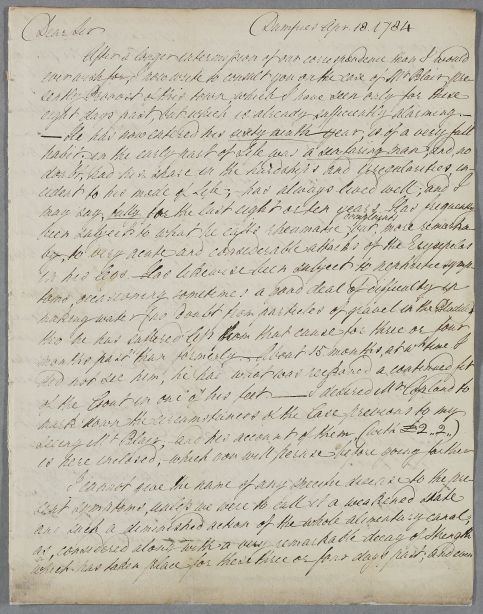 Dear Sir Dumfries Apr. 18. 1784
After a longer intermission of our correspondence than I would
ever wish for, I now write to consult you on the case of Mr Blair pre-
sently Provost of this town, which I have seen only for these
eight days past, but which is already sufficiently alarming. —
— He has now entered his sixty ninth year, is of a very full
habit; in the early part of Life was a seafaring man, and no
doubt, had his share in the hardships and irregularities in-
cident to his mode of Life; has always lived well; and I
may say, fully for the last eight or ten years. Has frequently
been subject to what he calls rheumatic complaints, but, more remarka-
bly, to very acute and considerable attacks of the Erysipelas
in his legs. Has likewise been subject to nephritic symp-
toms, occasioning sometimes a good deal of difficulty in
making water (no doubt from particles of gravel in the Bladder)
tho' he has suffered less from that cause for three or four
months past than formerly. About 15 months, at which time I
did not see him, he had what was reckoned a continued fit
of the Gout in one of his feet — I desired Mr Copland to
mark down the circumstances of the Case previous to my
seeing Mr Blair, and his account of them, (with £2..2,)
is here enclosed, which you will please before going further
I cannot give the name of any specific disease to the pre-
sent symptoms, unless we were to call it a weakened state
and such a diminished action of the whole alimentary canal;
as, considered along with a very remarkable decay of strength
which has taken place for these three or four days past, and even